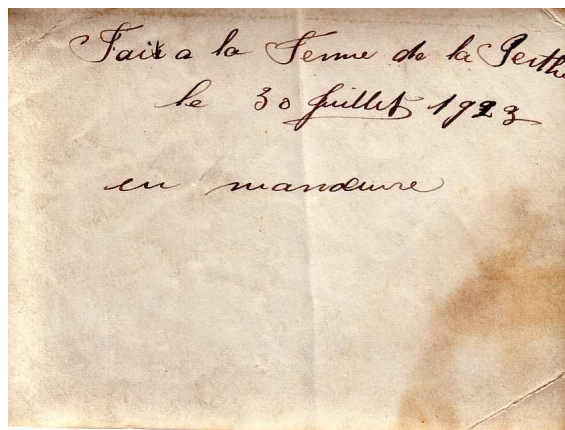 Fait a la Ferme de la Perthe
le 30 Juillet 1923
en manœuvre